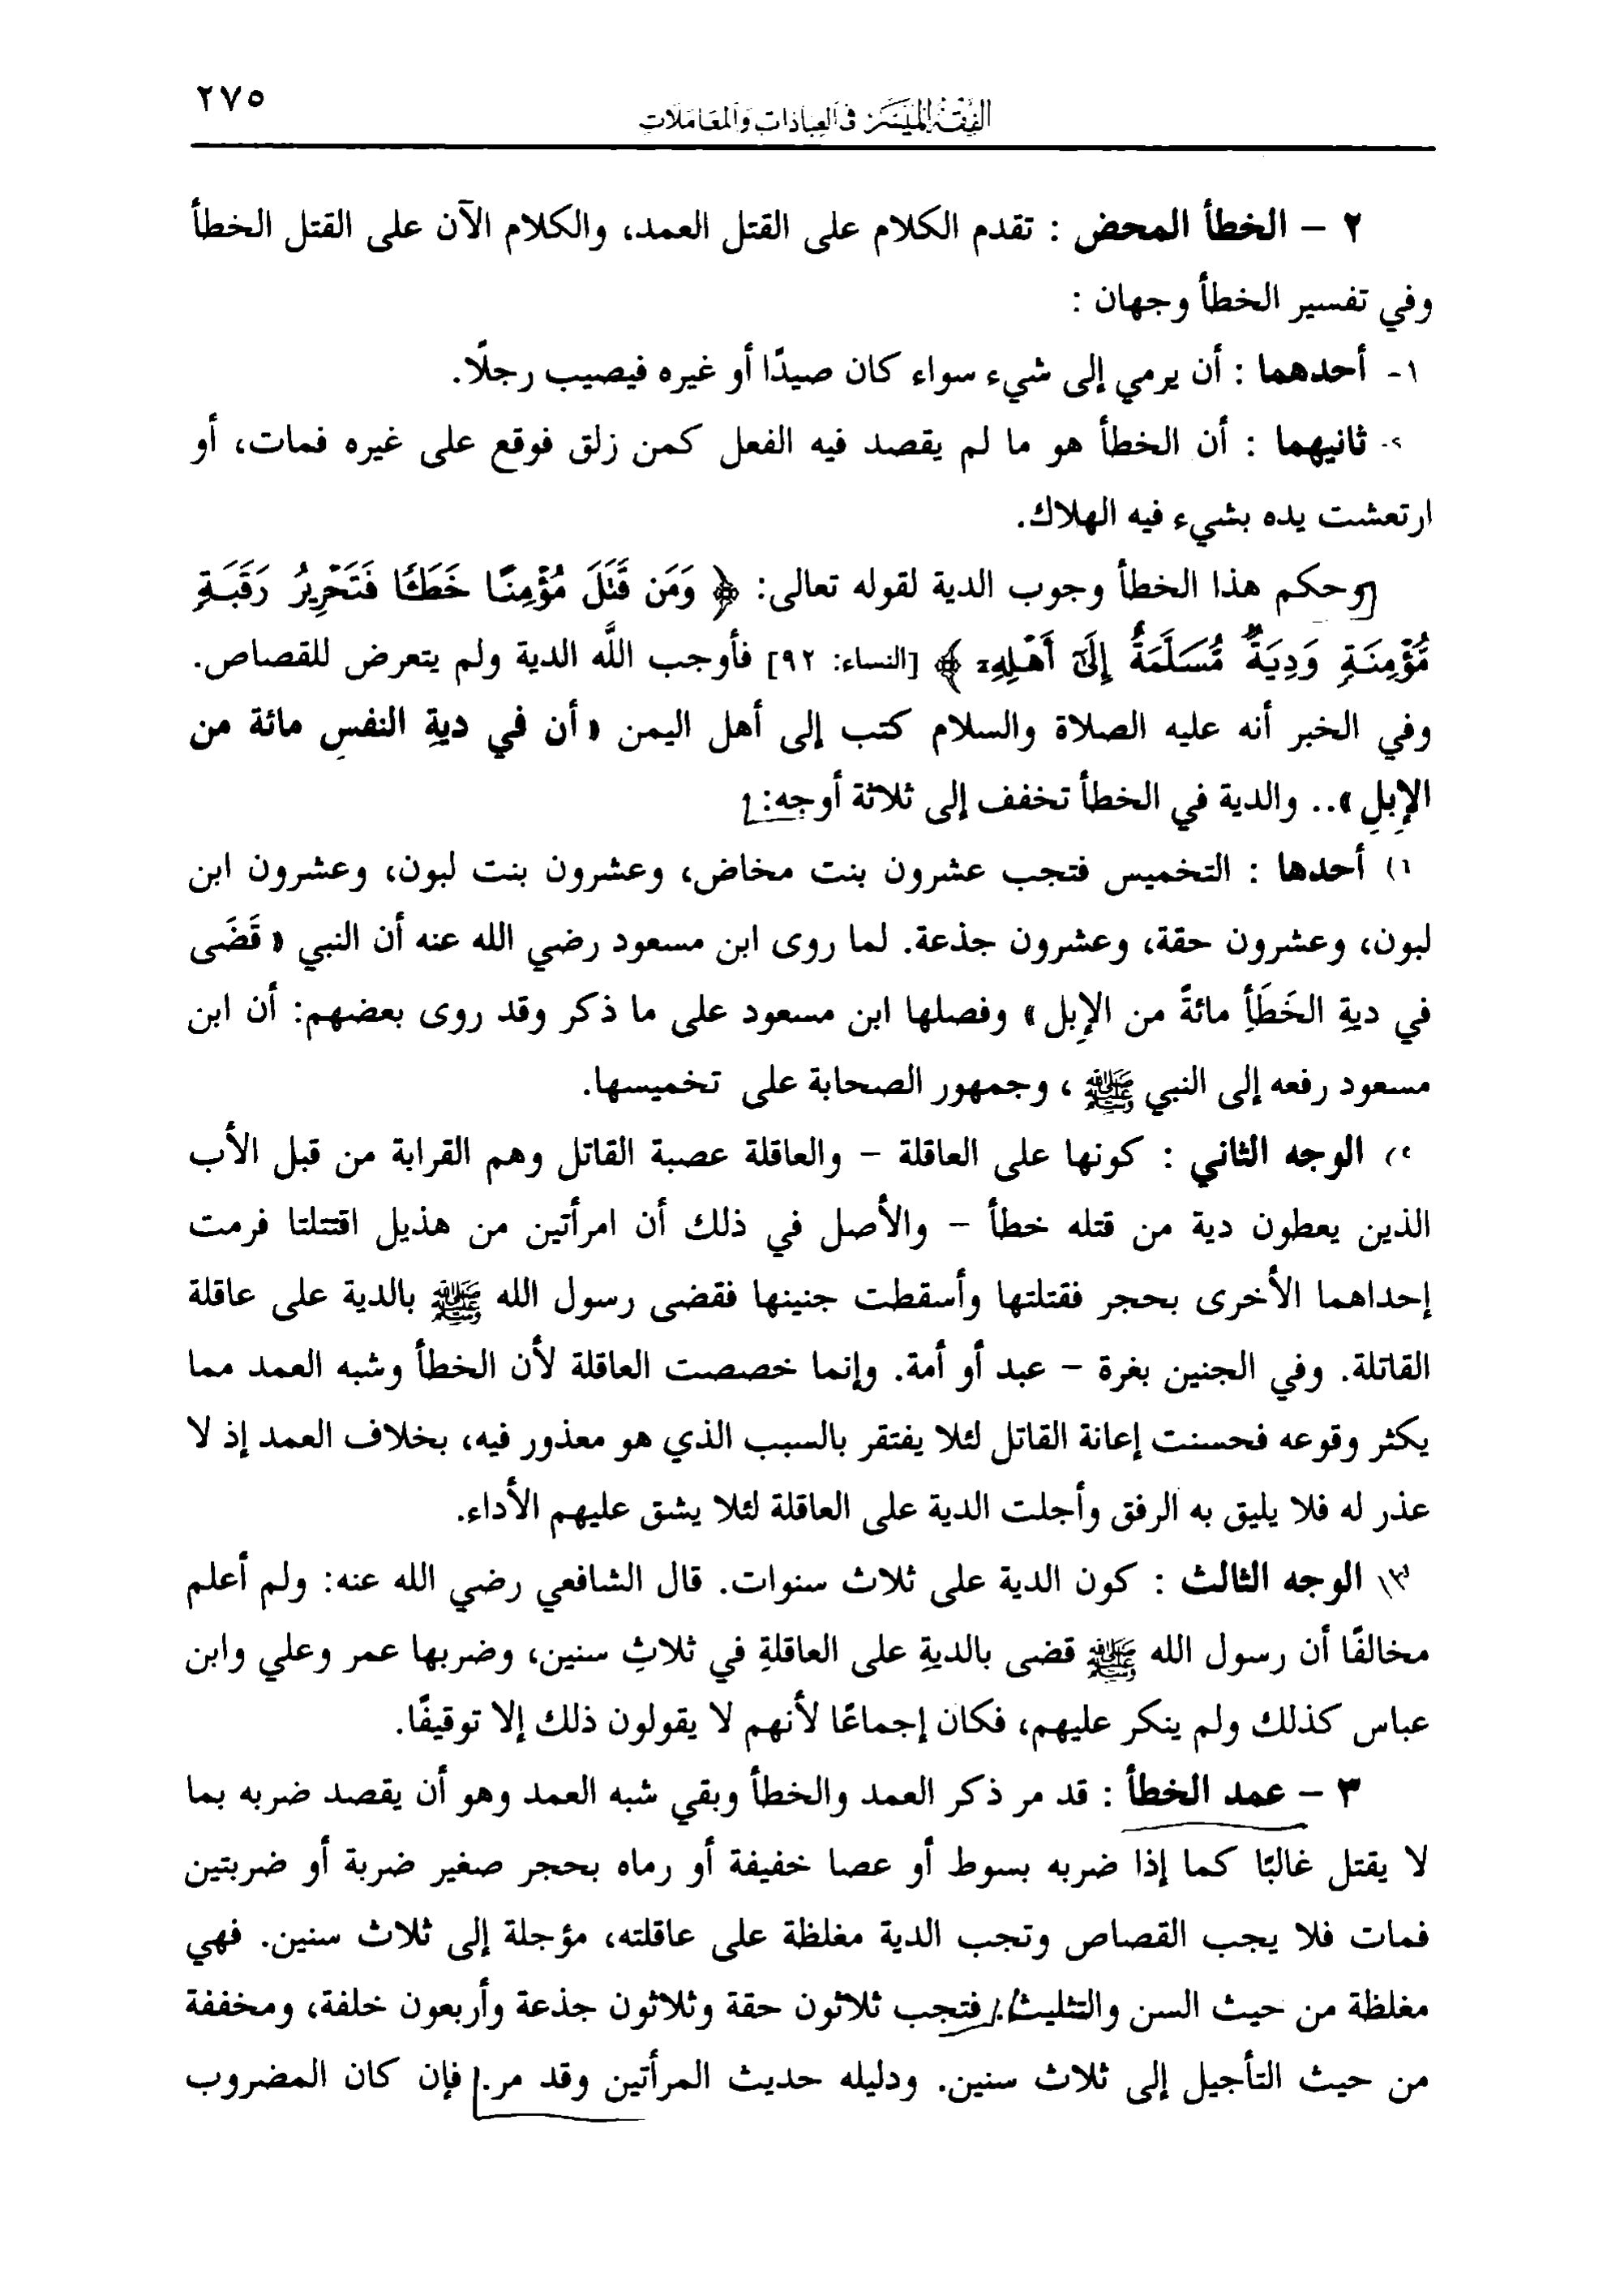 ٢٧٥
الفقه الميسر في العبادات والمعاملات
٢ - الخطأ المحض : تقدم الكلام على القتل العمد، والكلام الآن على القتل الخطأ
وفي تفسير الخطأ وجهان :
١- أحدهما : أن يرمي إلى شيء سواء كان صيدًا أو غيره فيصيب رجلًا.
٢- ثانيهما : أن الخطأ هو ما لم يقصد فيه الفعل كمن زلق فوقع على غيره فمات، أو
ارتعشت يده بشيء فيه الهلاك.
وحكم هذا الخطأ وجوب الدية لقوله تعالى: ﴿ وَمَن قَتَلَ مُؤْمِنًا خَطَـًٔا فَتَحْرِيرُ رَقَبَةٍ
مُّؤْمِنَةٍ وَدِيَةٌ مُّسَلَّمَةٌ إِلَىٰٓ أَهْلِهِۦ ﴾ [النساء: ٩٢] فأوجب اللَّه الدية ولم يتعرض للقصاص.
وفي الخبر أنه عليه الصلاة والسلام كتب إلى أهل اليمن « أن في ديةِ النفسِ مائة من
الإبِلِ ».. والدية في الخطأ تخفف إلى ثلاثة أوجه:
١) أحدها : التخميس فتجب عشرون بنت مخاض، وعشرون بنت لبون، وعشرون ابن
لبون، وعشرون حقة، وعشرون جذعة. لما روى ابن مسعود رضي الله عنه أن النبي « قَضَى
في ديةِ الخَطَأِ مائةً من الإبِل » وفصلها ابن مسعود على ما ذكر وقد روى بعضهم: أن ابن
مسعود رفعه إلى النبي ﷺ ، وجمهور الصحابة على تخميسها.
٢) الوجه الثاني : كونها على العاقلة - والعاقلة عصبة القاتل وهم القرابة من قبل الأب
الذين يعطون دية من قتله خطأ - والأصل في ذلك أن امرأتين من هذيل اقتتلتا فرمت
إحداهما الأخرى بحجر فقتلتها وأسقطت جنينها فقضى رسول الله ﷺ بالدية على عاقلة
القاتلة. وفي الجنين بغرة - عبد أو أمة. وإنما خصصت العاقلة لأن الخطأ وشبه العمد مما
يكثر وقوعه فحسنت إعانة القاتل لئلا يفتقر بالسبب الذي هو معذور فيه، بخلاف العمد إذ لا
عذر له فلا يليق به الرفق وأجلت الدية على العاقلة لئلا يشق عليهم الأداء.
٣) الوجه الثالث : كون الدية على ثلاث سنوات. قال الشافعي رضي الله عنه: ولم أعلم
مخالفًا أن رسول الله ﷺ قضى بالديةِ على العاقلةِ في ثلاثِ سنين، وضربها عمر وعلي وابن
عباس كذلك ولم ينكر عليهم، فكان إجماعًا لأنهم لا يقولون ذلك إلا توقيفًا.
٣ - عمد الخطأ : قد مر ذكر العمد والخطأ وبقي شبه العمد وهو أن يقصد ضربه بما
لا يقتل غالبًا كما إذا ضربه بسوط أو عصا خفيفة أو رماه بحجر صغير ضربة أو ضربتين
فمات فلا يجب القصاص وتجب الدية مغلظة على عاقلته، مؤجلة إلى ثلاث سنين. فهي
مغلظة من حيث السن والتثليث. فتجب ثلاثون حقة وثلاثون جذعة وأربعون خلفة، ومخففة
من حيث التأجيل إلى ثلاث سنين. ودليله حديث المرأتين وقد مر. فإن كان المضروب